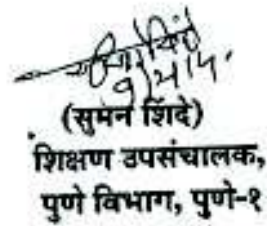 (सुमन शिंदे)
शिक्षण उपसंचालक,
पुणे विभाग, पुणे-१